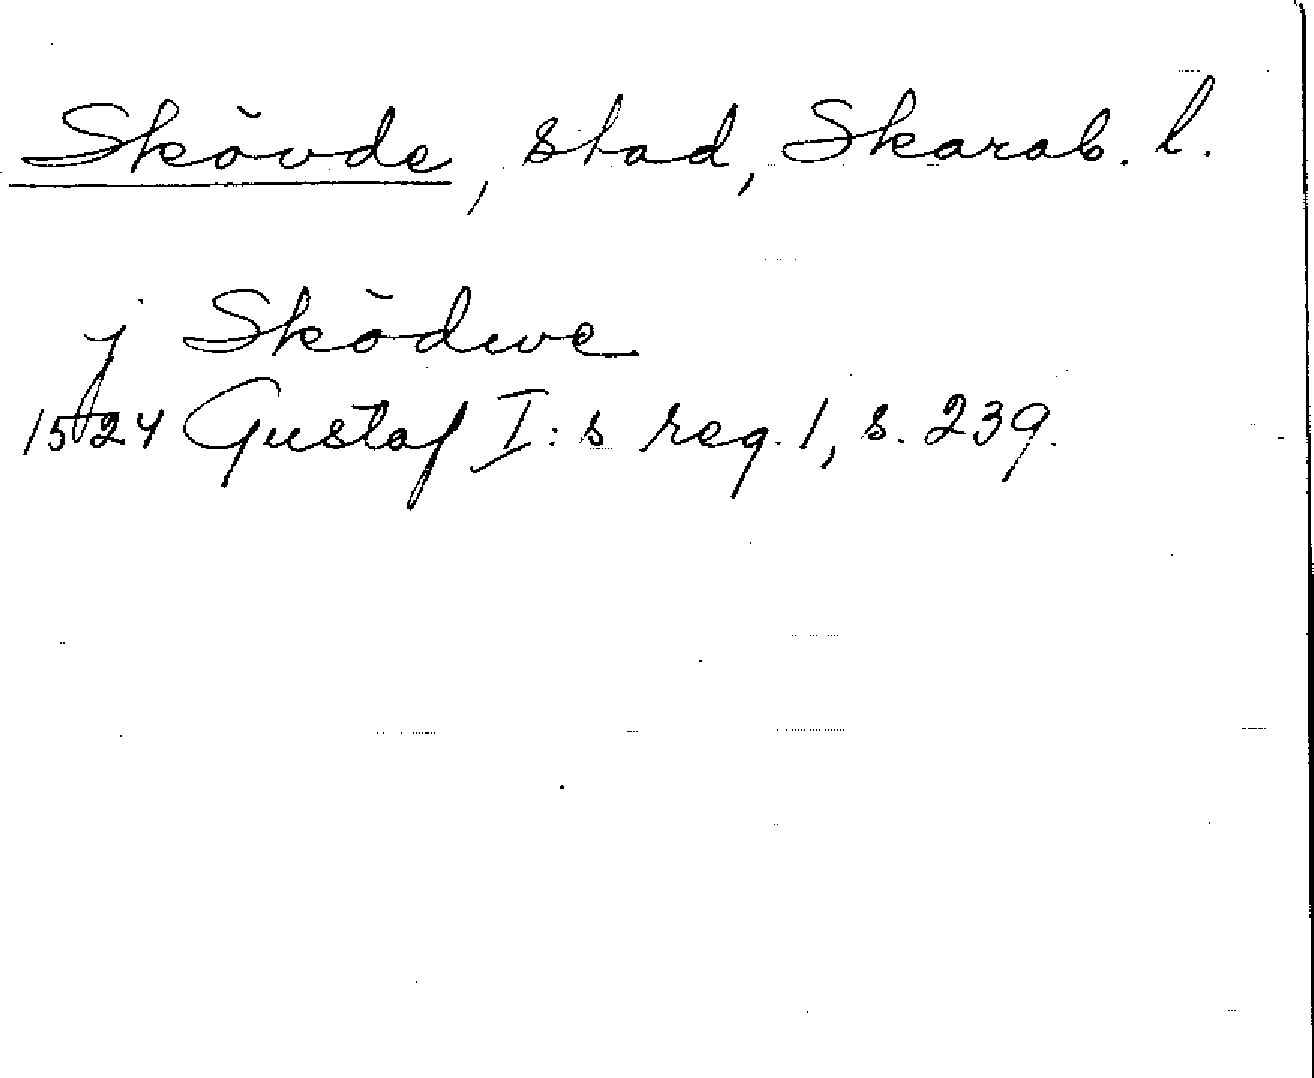 Skövde, stad, Skarab. l.
j Sködwe
1524 Gustaf I:s reg. 1, s. 239.